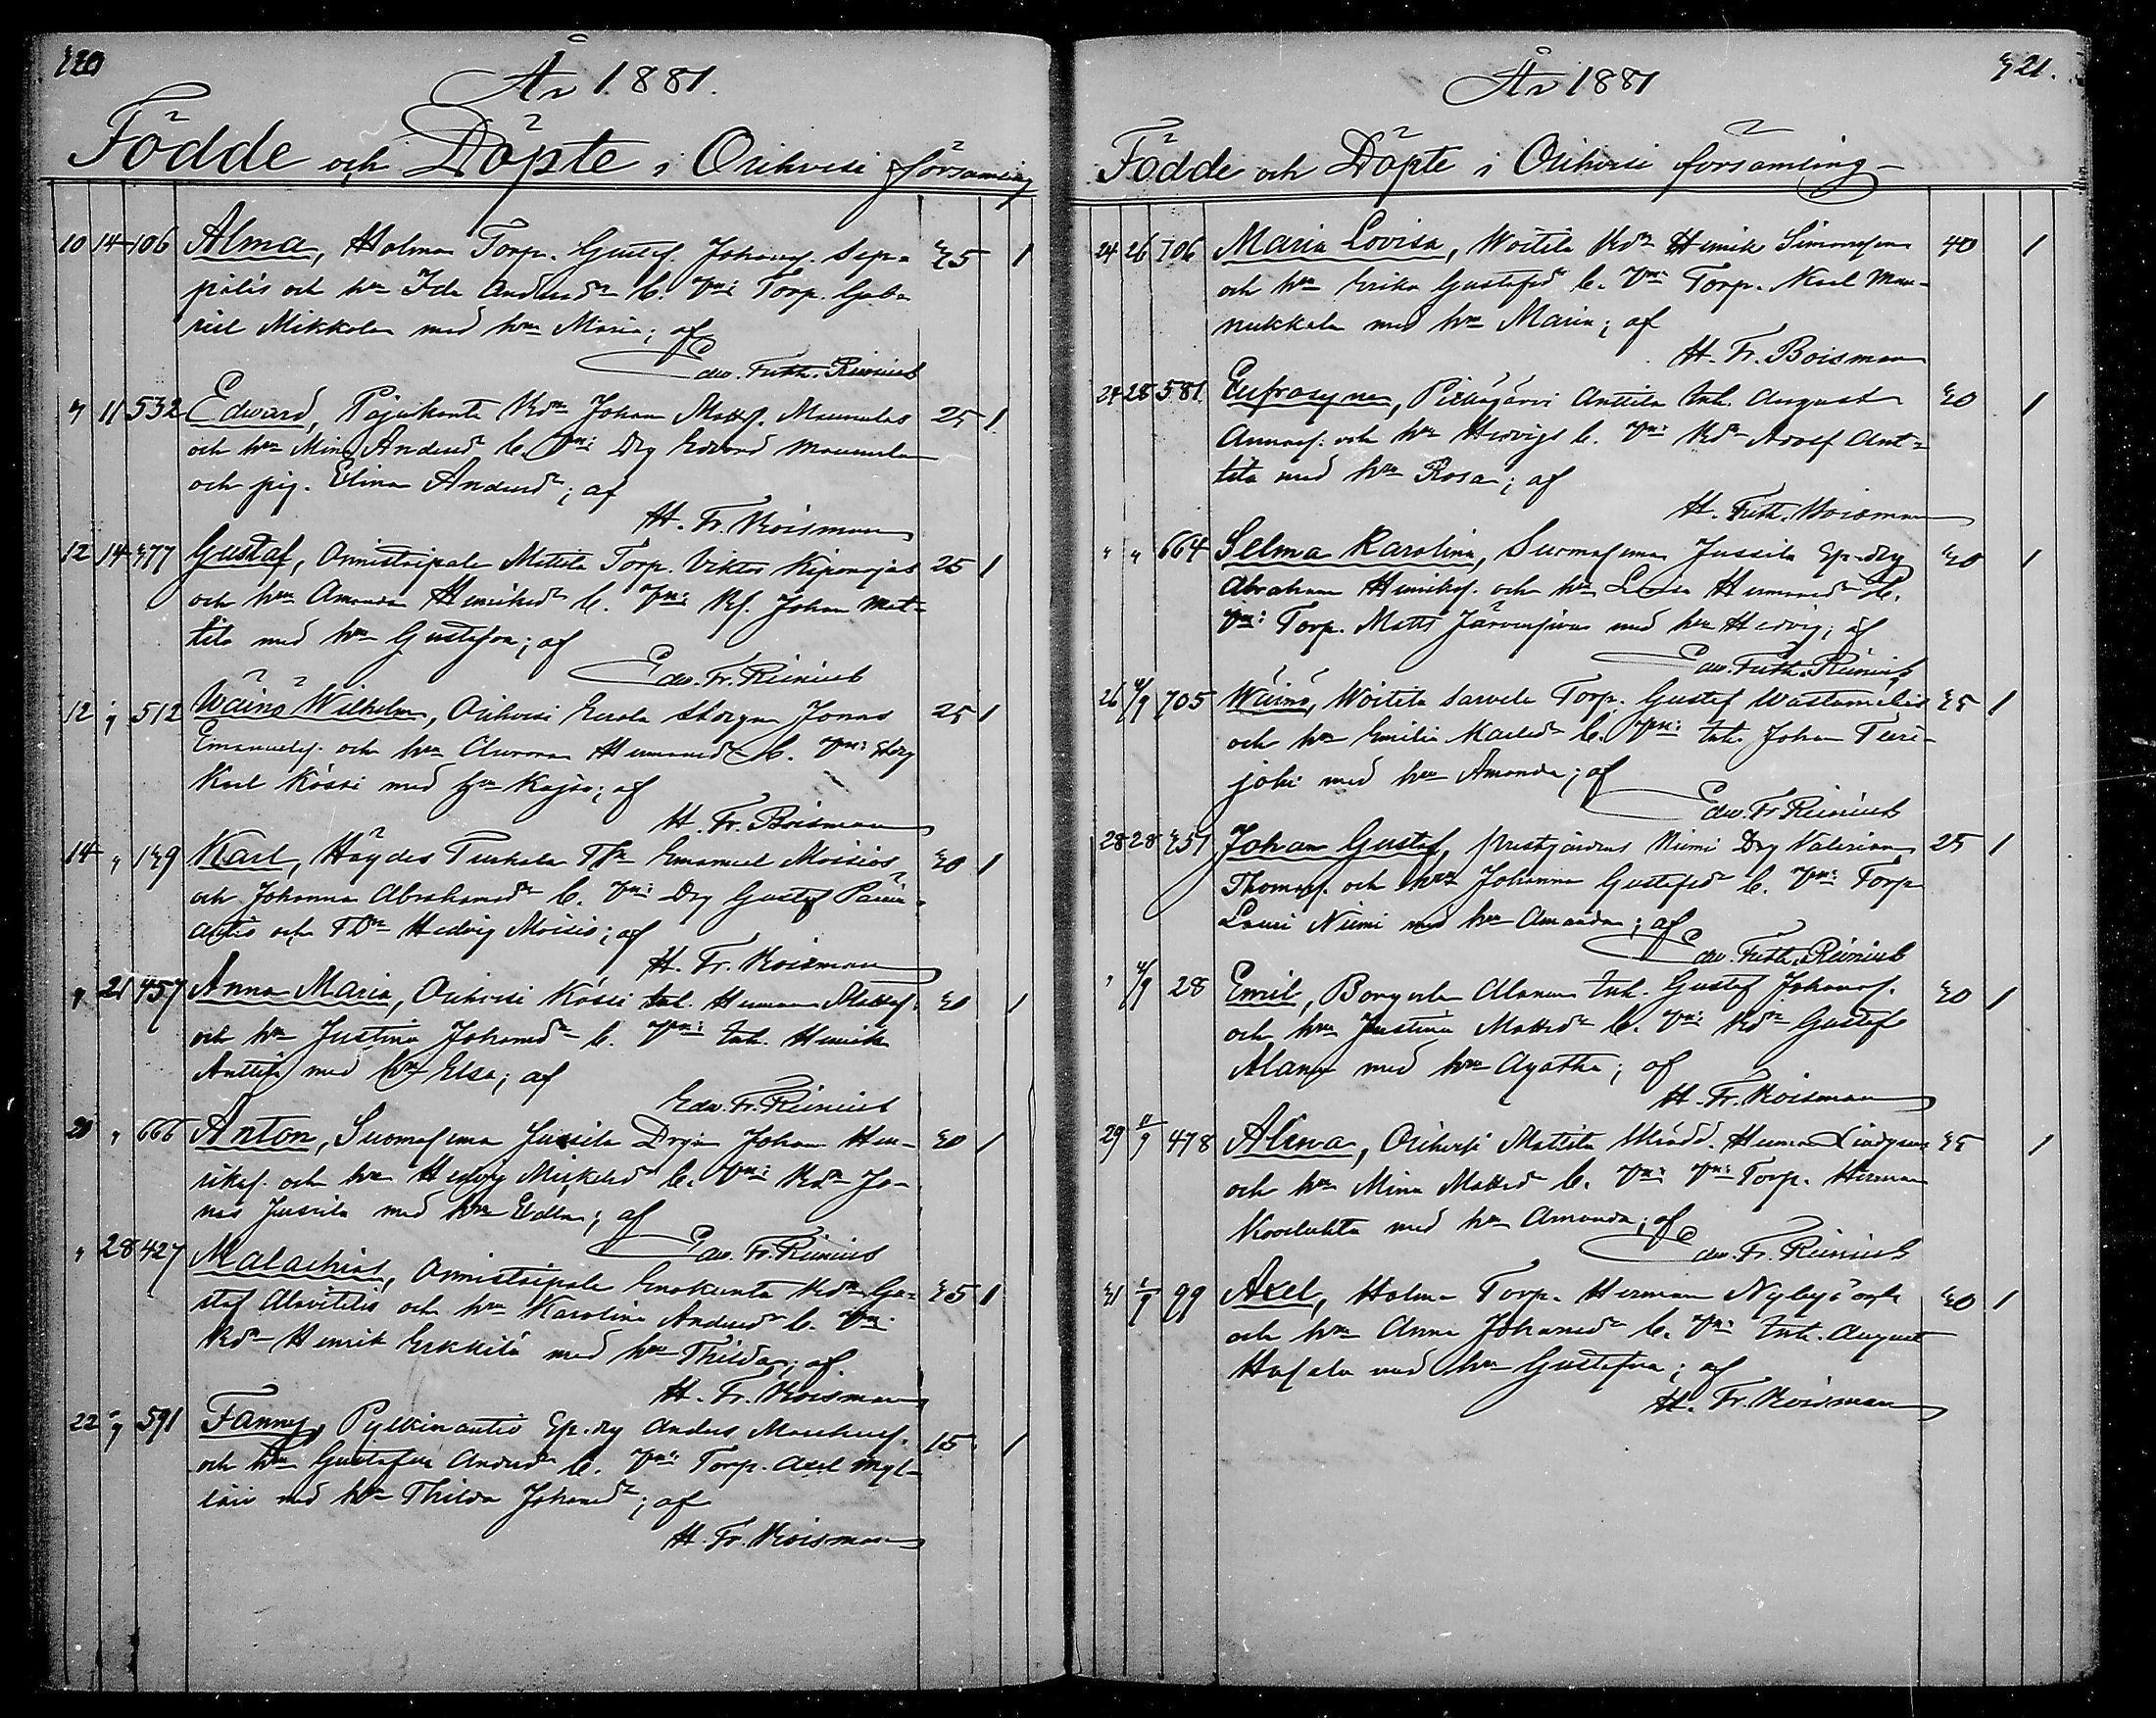 320
År 1881.
Födde och Döpte i Orihvesi församling
10 14 106 Alma, Holma Torp. Gustaf Johanss. Sep- 35 1
pälis och hru Ida Andersdr b. Vn: Torp. Gab-
riel Mikkola med hru Maria; af
Edw. Frith. Reinius
" 11 532 Edward, Pajukanta Bdn Johan Matss. Maunulas 25 1
och hru Mina Andersd b. Vn: Drg Edvard Maunula
och pig. Elina Andersdr; af
H. Fr. Boisman
12 14 377 Gustaf, Onnistaipale Mattila Torp. Viktor 25 1
och hru Amanda Henriksdr b. Vn: Johan Mat-
tila med hru Gustafva; af
Edv. Fr. Reinius
12 " 512 Wäinö Wilhelm, Orihvesi Eerola Jonas 25 1
Emanuelss. och hru Aurora Hermansdr b. Vn:
Karl Kössi med hru Kajsa; af
H. Fr. Boisman
14 " 139 Karl, Höydes Turkola Emanuel Moisios 30 1
och Johanna Abrahamsdr b. Vn: Drg Gustaf
och Hedvig Moisio; af
H. Fr. Boisman
" 21 457 Anna Maria, Orihvesi Kössi Inh. Herman Mattss. 30 1
och hru Justina Johansdr b. Vn: Inh. Henrik
Anttila med hru Elsa; af
Edw. Fr. Reinius
20 " 666 Anton, Suomasema Jussila Drgn Johan Hen- 30 1
rikss. och hru Hedvig Mickelsdr b. Vn: Bdn Jo-
nas Jussila med hru Edla; af
Edw. Fr. Reinius
" 28 427 Malachias, Onnistaipale Enokunta Bdn Gu- 35 1
staf Alavitilis och hru Karolina Andersdr b. Vn:
Bdn Henrik Erkkilä med hru Thilda; af
H. Fr. Boisman
22 " 591 Fanny, Pylkinautio drg Anders 15 1
och hru Gustafva Andersdr b. Vn: Torp. Axel Myl-
läri med hru Thilda Johansdr; af
H. Fr. Boisman
321.
År 1881
Födde och Döpte i Orihvesi församling
24 26 706 Maria Lovisa, Woitila Bdn Henrik Simonsson 40 1
och hru Erika Gustafsd b. Vn: Torp. Karl Man-
nukkala med hru Maria; af
H. Fr. Boisman
24 28 581 Eufrosyne, Pitkäjärvi Anttila Inh. August 30 1
och hru Hedvigs b. Vn: Bdn Adolf Ant-
tila med hru Rosa; af
H. Frith. Boisman
" " 664 Selma Karolina, Suomasema Jussila drg 30 1
Abraham Henrikss. och hru Lovisa Hermansdr b.
Vn: Torp. Matts Järvensivu med hru Hedvig; af
Edw. Frith. Reinius
26 4/9 705 Wäinö, Woitila Sarvela Torp. Gustaf Wastamäkis 35 1
och hru Emilia Karlsdr b. Vn: Inh. Johan Teeri-
joki med hru Amanda; af
Edw. Fr. Reinius
28 28 351 Johan Gustaf, Prestgårdens Niemi Drg Valerian 25 1
Thomass. och hru Johanna Gustafsdr b. Vn: Torp
Lauri Niemi med hru Amanda; af
Edw. Frith. Reinius
" 4/9 28 Emil, Alanen Inh. Gustaf Johanss. 30 1
och hru Justina Mattsdr b. Vn: Bdn Gustaf
Alanen med hru Agatha; af
H. Fr. Boisman
29 11/9 478 Alma, Orihvesi Mattila Herman Lindgrens 35 1
och hru Mina Mattsdr b. Vn: Vn: Torp. Herman
med hru Amanda; af
Edw. Fr. Reinius
31 1/9 99 Axel, Holma Torp. Herman 30 1
och hru Anna Johansdr b. Vn: Inh. August
med hru Gustafva; af
H. Fr. Boisman